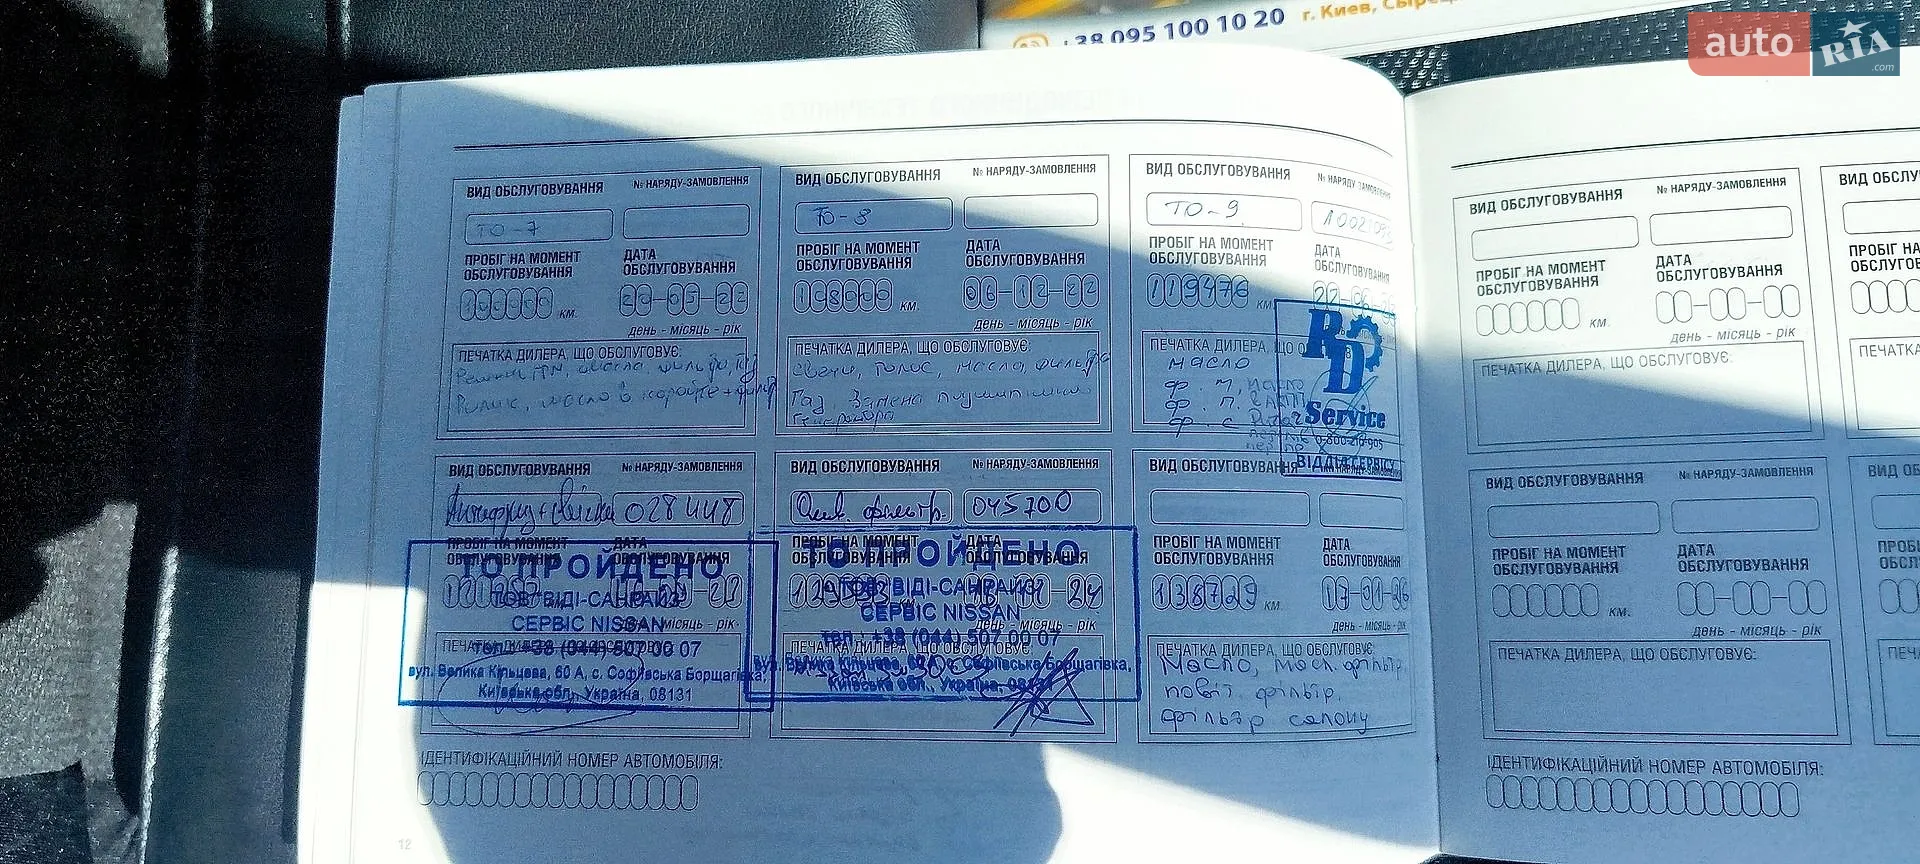 +38 095 100 10 20 г. Киев, Сырец
auto RIA .com
ВИД ОБСЛУГОВУВАННЯ № НАРЯДУ-ЗАМОВЛЕННЯ
ТО-7
ПРОБІГ НА МОМЕНТ ОБСЛУГОВУВАННЯ
ДАТА ОБСЛУГОВУВАННЯ
100000 км. 20-05-22
день - місяць - рік
ПЕЧАТКА ДИЛЕРА, ЩО ОБСЛУГОВУЄ:
Ремень ГРМ, масла, фильтра,
Ролик, масло в коробке + фильтр
ВИД ОБСЛУГОВУВАННЯ № НАРЯДУ-ЗАМОВЛЕННЯ
ТО-8
ПРОБІГ НА МОМЕНТ ОБСЛУГОВУВАННЯ
ДАТА ОБСЛУГОВУВАННЯ
108000 км. 06-12-22
день - місяць - рік
ПЕЧАТКА ДИЛЕРА, ЩО ОБСЛУГОВУЄ:
Свечи, масла, фильтра
Газ, Замена подшипников
генератора
ВИД ОБСЛУГОВУВАННЯ № НАРЯДУ-ЗАМОВЛЕННЯ
ТО-9
ПРОБІГ НА МОМЕНТ ОБСЛУГОВУВАННЯ
ДАТА ОБСЛУГОВУВАННЯ
119476 км.
ПЕЧАТКА ДИЛЕРА, ЩО
масло
ф. м.
ф. п.
ф. с.
RD
Service
0-800-210-905
ВІДДІЛ СЕРВІСУ
ВИД ОБСЛУГОВУВАННЯ № НАРЯДУ-ЗАМОВЛЕННЯ
Антифриз + свічки 028448
ПРОБІГ НА МОМЕНТ ДАТА
ОБСЛУГОВУВАННЯ ОБСЛУГОВУВАННЯ
місяць - рік
ПЕЧАТКА ДИЛЕРА, ЩО ОБСЛУГОВУЄ:
ТО ПРОЙДЕНО
ТОВ "ВІДІ-САНРАЙЗ"
СЕРВІС NISSAN
тел.: +38 (044) 507 00 07
вул. Велика Кільцева, 60 А, с. Софіївська Борщагівка,
Київська обл., Україна, 08131
ВИД ОБСЛУГОВУВАННЯ № НАРЯДУ-ЗАМОВЛЕННЯ
Олив. фільтр. 045700
ПРОБІГ НА МОМЕНТ ДАТА
ОБСЛУГОВУВАННЯ ОБСЛУГОВУВАННЯ
день - місяць - рік
ПЕЧАТКА ДИЛЕРА, ЩО ОБСЛУГОВУЄ:
ТО ПРОЙДЕНО
ТОВ "ВІДІ-САНРАЙЗ"
СЕРВІС NISSAN
тел.: +38 (044) 507 00 07
вул. Велика Кільцева, 60 А, с. Софіївська Борщагівка,
Київська обл., Україна, 08131
ВИД ОБСЛУГОВУВАННЯ
ПРОБІГ НА МОМЕНТ ОБСЛУГОВУВАННЯ
ДАТА ОБСЛУГОВУВАННЯ
138729 км. 17-01-26
день - місяць - рік
ПЕЧАТКА ДИЛЕРА, ЩО ОБСЛУГОВУЄ:
Масло, масл. фільтр.
повіт фільтр.
фільтр салону
ІДЕНТИФІКАЦІЙНИЙ НОМЕР АВТОМОБІЛЯ:
12
ВИД ОБСЛУГОВУВАННЯ № НАРЯДУ-ЗАМОВЛЕННЯ
ПРОБІГ НА МОМЕНТ ОБСЛУГОВУВАННЯ
ДАТА ОБСЛУГОВУВАННЯ
км.
день - місяць - рік
ПЕЧАТКА ДИЛЕРА, ЩО ОБСЛУГОВУЄ:
ВИД ОБСЛУ
ПРОБІГ НА
ОБСЛУГОВ
ПЕЧАТКА
ВИД ОБСЛУГОВУВАННЯ № НАРЯДУ-ЗАМОВЛЕННЯ
ПРОБІГ НА МОМЕНТ ОБСЛУГОВУВАННЯ
ДАТА ОБСЛУГОВУВАННЯ
км.
день - місяць - рік
ПЕЧАТКА ДИЛЕРА, ЩО ОБСЛУГОВУЄ:
ВИД ОБ
ПРОБІ
ОБСЛ
ПЕЧ
ІДЕНТИФІКАЦІЙНИЙ НОМЕР АВТОМОБІЛЯ: